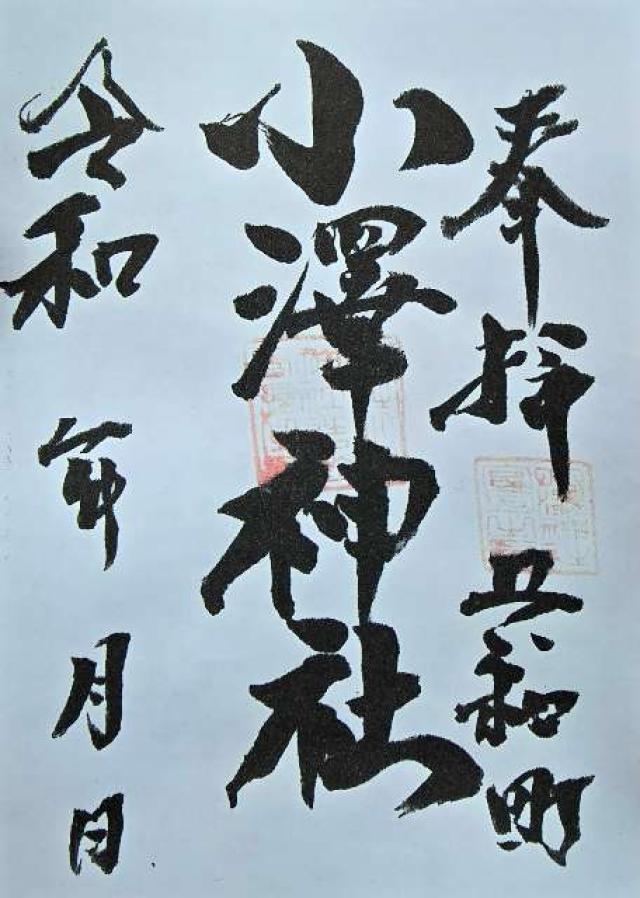 奉拝 共和町
小澤神社
令和 年 月 日